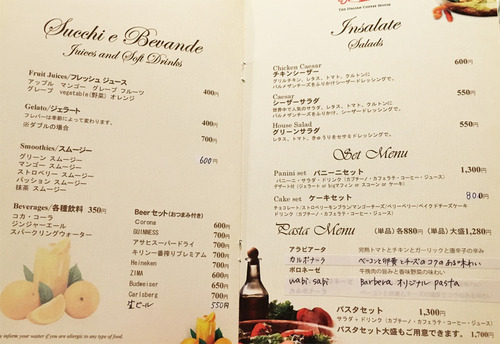 Succhi e Bevande
Juices and Soft Drinks
Fruit Juices/フレッシュ ジュース
アップル マンゴー グレープ フルーツ
グレープ vegetable(野菜) オレンジ 400円
Gelato/ジェラート
フレバーは季節によって変わります。 400円
※ダブルの場合 700円
Smoothies/スムージー
グリーン スムージー 600円
マンゴー スムージー
ストロベリー スムージー
パッション スムージー
抹茶 スムージー
Beverages/各種飲料 350円
コカ・コーラ
ジンジャーエール
スパークリングウォーター
Beer セット(おつまみ付き)
Corona 600円
GUINNESS 700円
アサヒスーパードライ 700円
キリン一番搾りプレミアム 700円
Heineken 700円
ZIMA 600円
Budweiser 650円
Carlsberg 700円
生ビール 550円
inform your waiter if you are allergic to any type of food.
THE ITALIAN COFFEE HOUSE
Insalate
Salads
Chicken Caesar 600円
チキンシーザー
グリルチキン、レタス、トマト、クルトンに
パルメザンチーズをふりかけシーザードレッシングで。
Caesar 550円
シーザーサラダ
世界中で人気のサラダ、レタス、トマト、クルトンに
パルメザンチーズをふりかけ、シーザードレッシングで。
House Salad 550円
グリーンサラダ
レタス、トマト、きゅうりをセサミドレッシングで。
Set Menu
Panini set パニーニセット 1,300円
パニーニ・サラダ・ドリンク (カプチーノ・カフェラテ・コーヒー・ジュース)
デザート付 (ジェラート or bigマフィン or スコーン or ケーキ)
Cake set ケーキセット 800円
チョコレート,ストロベリーモンブランマンゴチーズ/ベリーベリー/ベイクドチーズケーキ
ドリンク (カプチーノ・カフェラテ・コーヒー・ジュース)
Pasta Menu (単品) 各880円 (単品) 大盛1,280円
アラビアータ 完熟トマトとチキンとガーリックと唐辛子の辛み
カルボナーラ ベーコンと卵黄とチーズのコクのある味わい
ボロネーゼ 牛挽肉の旨みと香味野菜の味わい
wabi·sabi Barbera オリジナル pasta
パスタセット 1,300円
サラダ・ドリンク (カプチーノ・カフェラテ・コーヒー・ジュース)
パスタセット大盛もご用意できます。 1,700円